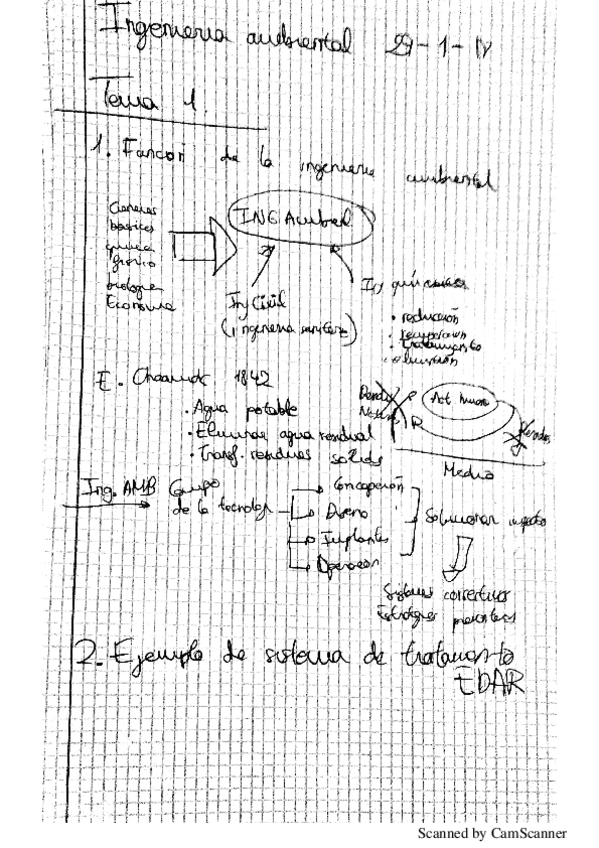 Ingenieria ambiental
Tema 1.
1. Función de la ingenieria ambiental
Ciencias
básicas
química
física
biología
Economía
ING Ambiental
Ing Civil
(ingenieria sanitaria)
Ing química
• reducción
• recuperación
• tratamiento
eliminación
E. 1842
• Agua potable
• Eliminar agua residual
• Transf. residuos solidos
Act humana
Medio
Ing. AMB Campo de la tecnolog
Concepción
Diseño
Implantac
Operación
Solucionar
Sistemas correctivos
Estrategias preventivas
2. Ejemplo de sistema de tratamiento
EDAR
Scanned by CamScanner